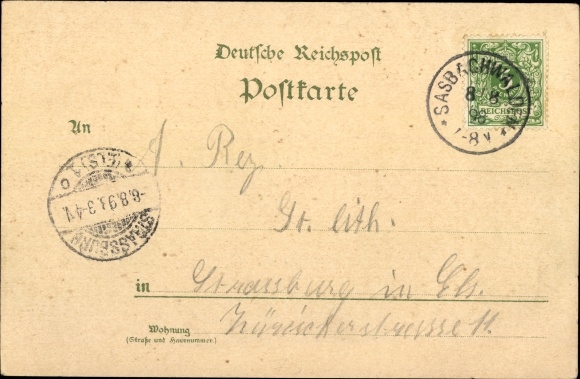 Deutsche Reichspost
Postkarte
SASBACHWALDEN
8 8
98
7-8V
REICHSPOST
An
J. Rey
Gr. lith.
in Strassburg in Els.
Züricherstrasse 11.
Wohnung
(Straße und Hausnummer)
STRASSBURG
* (ELS) 1 c
8.8.98. 3-4 N.